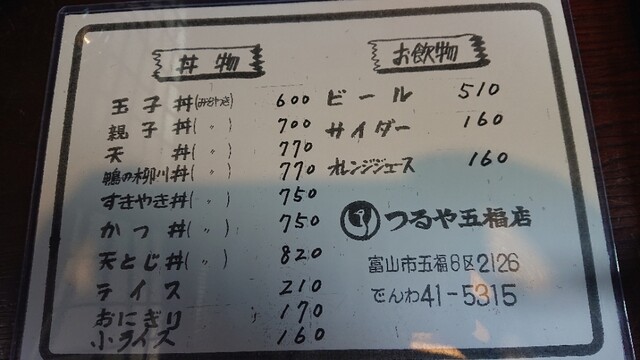 丼物
玉子丼(みそ汁つき) 600
親子丼( 〃 ) 700
天丼( 〃 ) 770
鴨の柳川丼( 〃 ) 770
すきやき丼( 〃 ) 750
かつ丼( 〃 ) 750
天とじ丼( 〃 ) 820
ライス 210
おにぎり 170
小ライス 160
お飲物
ビール 510
サイダー 160
オレンジジュース 160
つるや五福店
富山市五福8区2126
でんわ41-5315